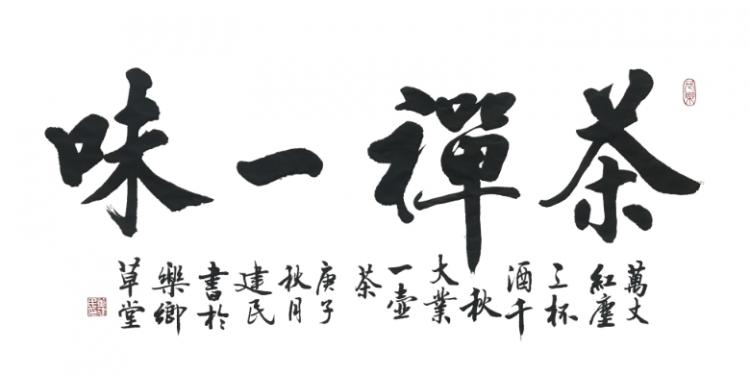 茶禪一味
萬丈
紅塵
三杯
酒千
秋
大業
一壺
茶
庚子
秋月
建民
書於
樂鄉
草堂